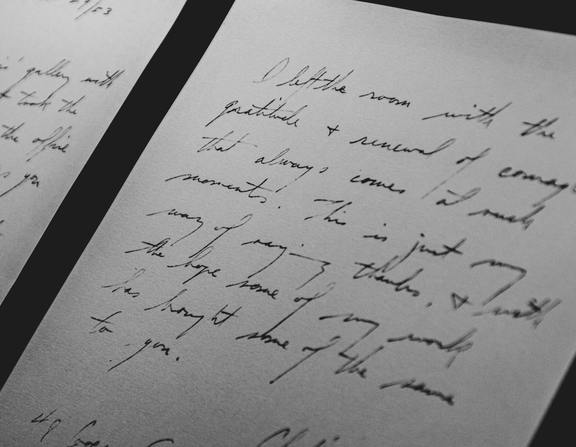 /53
gallery with
took the
the office
you
I left the room with the
gratitude & renewal of courage
that always comes at such
moments. This is just my
way of saying thanks, & with
the hope some of my work
has brought some of the same
to you.